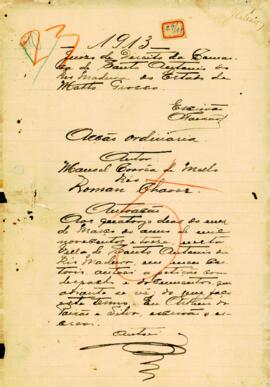 1913
Juizo de Direito da Comar-
ca de Santo Antonio do
Rio Madeira do Estado de
Matto Grosso
Escrivão
Acção ordinaria
Autor
Manoel Corrêa de Mello
Réo
Roman Chavez
Autoação
Aos quatorze dias do mez
de Março do anno de mil
novecentos e treze, nesta
Villa de Santo Antonio do
Rio Madeira, em meu car-
torio, autuo a petição com
despacho e documentos que
adiante se vê do que faço
este termo. Eu
escrivão o es-
crevi.